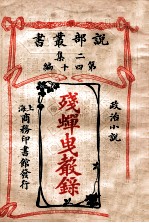 說部叢書
二集第四十編
政治小說
殘蟬曳聲錄
上海商務印書館發行